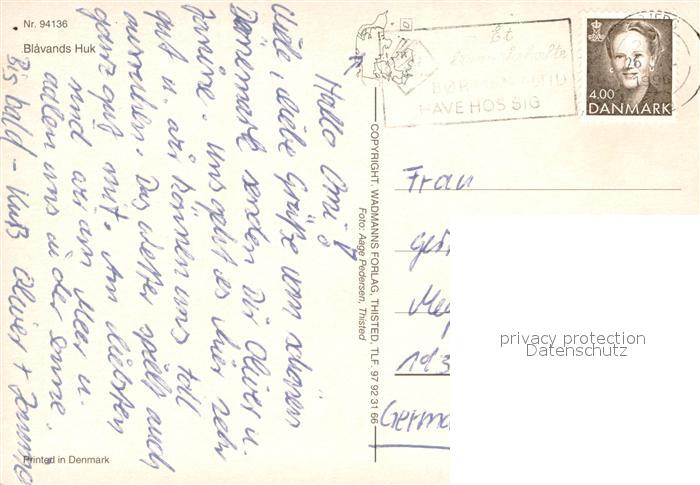 Nr. 94136
Blåvands Huk
Hallo Omi!
Viele, liebe Grüße vom schönen
Dänemark senden Dir Oliver u.
Janine. Uns geht es hier sehr
gut u. wir können uns toll
ausruhen. Das Wetter spielt auch
ganz gut mit. Am liebsten
sind wir am Meer u.
aalen uns in der Sonne.
Bis bald - Kuß Oliver + Janine
Printed in Denmark
COPYRIGHT. WADMANNS FORLAG, THISTED, TLF. 97 92 31 66
Foto: Aage Pedersen, Thisted
Et
BØR MAN ALTID
HAVE HOS SIG
4.00
DANMARK
Frau
193
Germa
privacy protection
Datenschutz